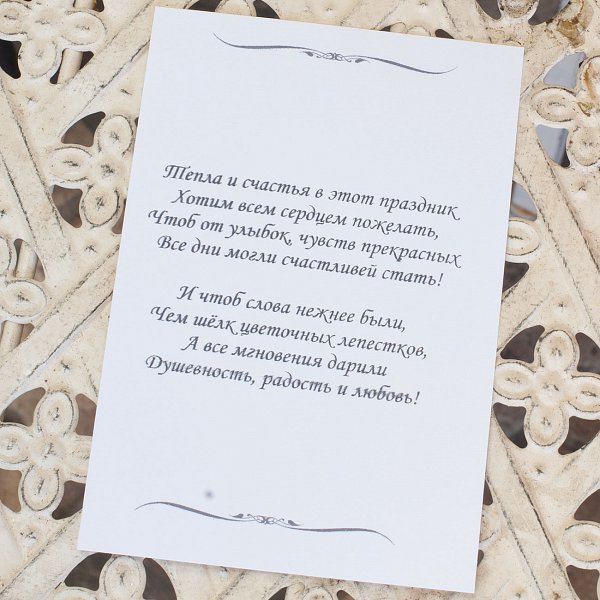 Тепла и счастья в этот праздник
Хотим всем сердцем пожелать,
Чтоб от улыбок, чувств прекрасных
Все дни могли счастливей стать!
И чтоб слова нежнее были,
Чем шёлк цветочных лепестков,
А все мгновения дарили
Душевность, радость и любовь!